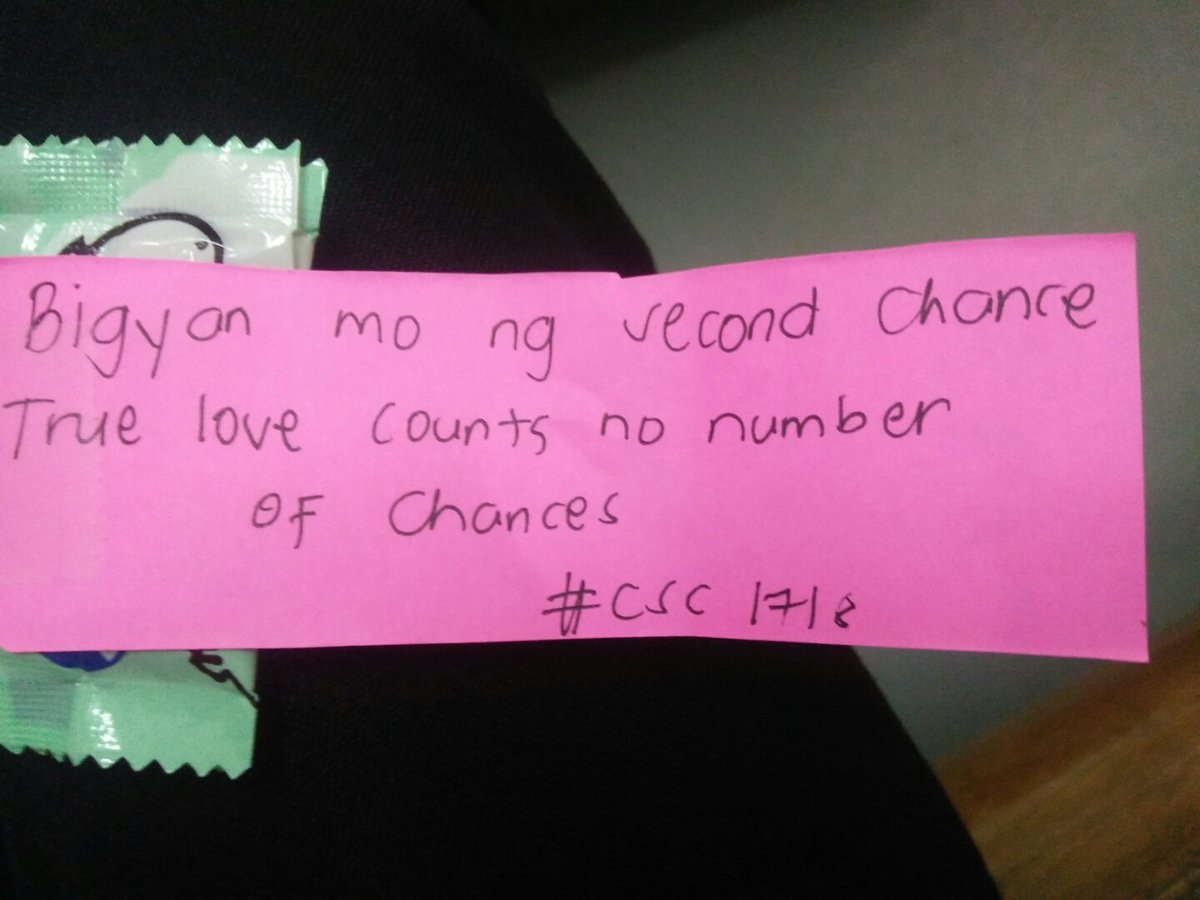 Bigyan mo ng second chance
True love counts no number
of chances
#CSC 1718